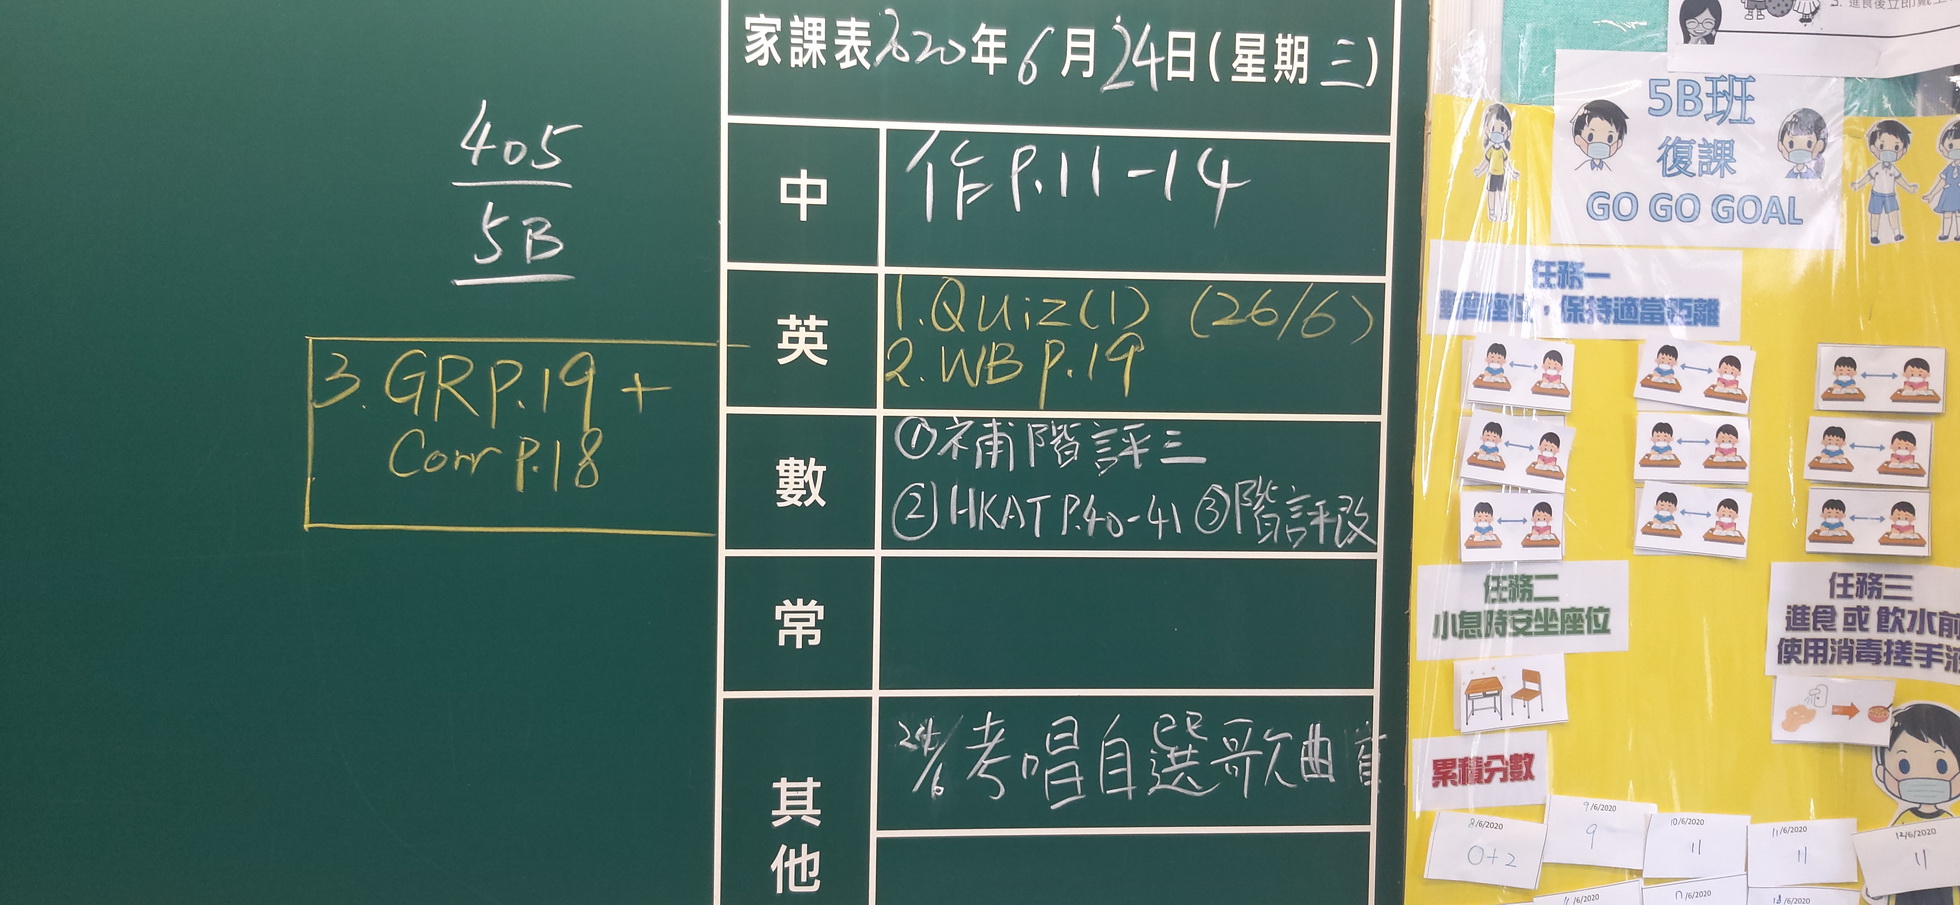 405
5B
3. GR P.19 +
Corr P.18
家課表2020年6月24日(星期三)
中
作P.11-14
英
1. Quiz(1) (26/6)
2. WB P.19
數
①補階評三
②HKAT P.40-41 ③階評改
常
其他
24/6考唱自選歌曲
5B班
復課
GO GO GOAL
任務一
座位，保持適當距離
任務二
小息時安坐座位
任務三
進食 或 飲水前
使用消毒搓手液
累積分數
8/6/2020
0+2
9/6/2020
9
10/6/2020
11
11/6/2020
11
12/6/2020
11